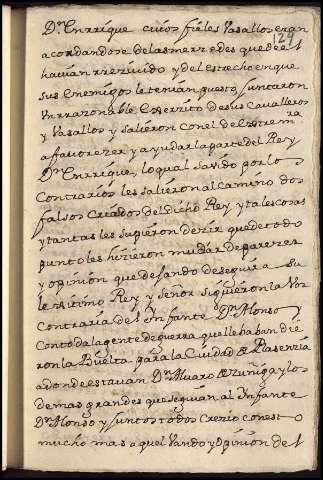 129
Dⁿ Enrrique cuios fieles Vasallos eran
acordandose delasmerzedes quedeel
havian rrezivido y del estrecho enque
sus Enemigos letenian puesto juntaron
Vnrrazonable Exerzito desus Cavalleros
y Vasallos y salieron conel de Extremra
afavorezer yayudar laparte del Rey
Dⁿ Enrrique, loqual savido porlos
Contrarios les salieron al Camino dos
falsos Criados del dicho Rey ytalescosas
ytantas les supieron dezir quedetodo
punto les hizieron mudar deparezer
y opinion que dejando deseguir a su
lexitimo Rey y señor siguieron la Voz
Contraria del Ynfante Dⁿ Alonso y
Contodalagente deguerra quellebaban die
ron la Buelta para la Ciudad de Plasenzia
adonde estavan Dⁿ Alvaro de Zuñiga ylos
demas grandes queseguian al Ynfante
Dⁿ Alonso y juntos todos Crezio conesto
mucho mas aquel Vando y opinion del